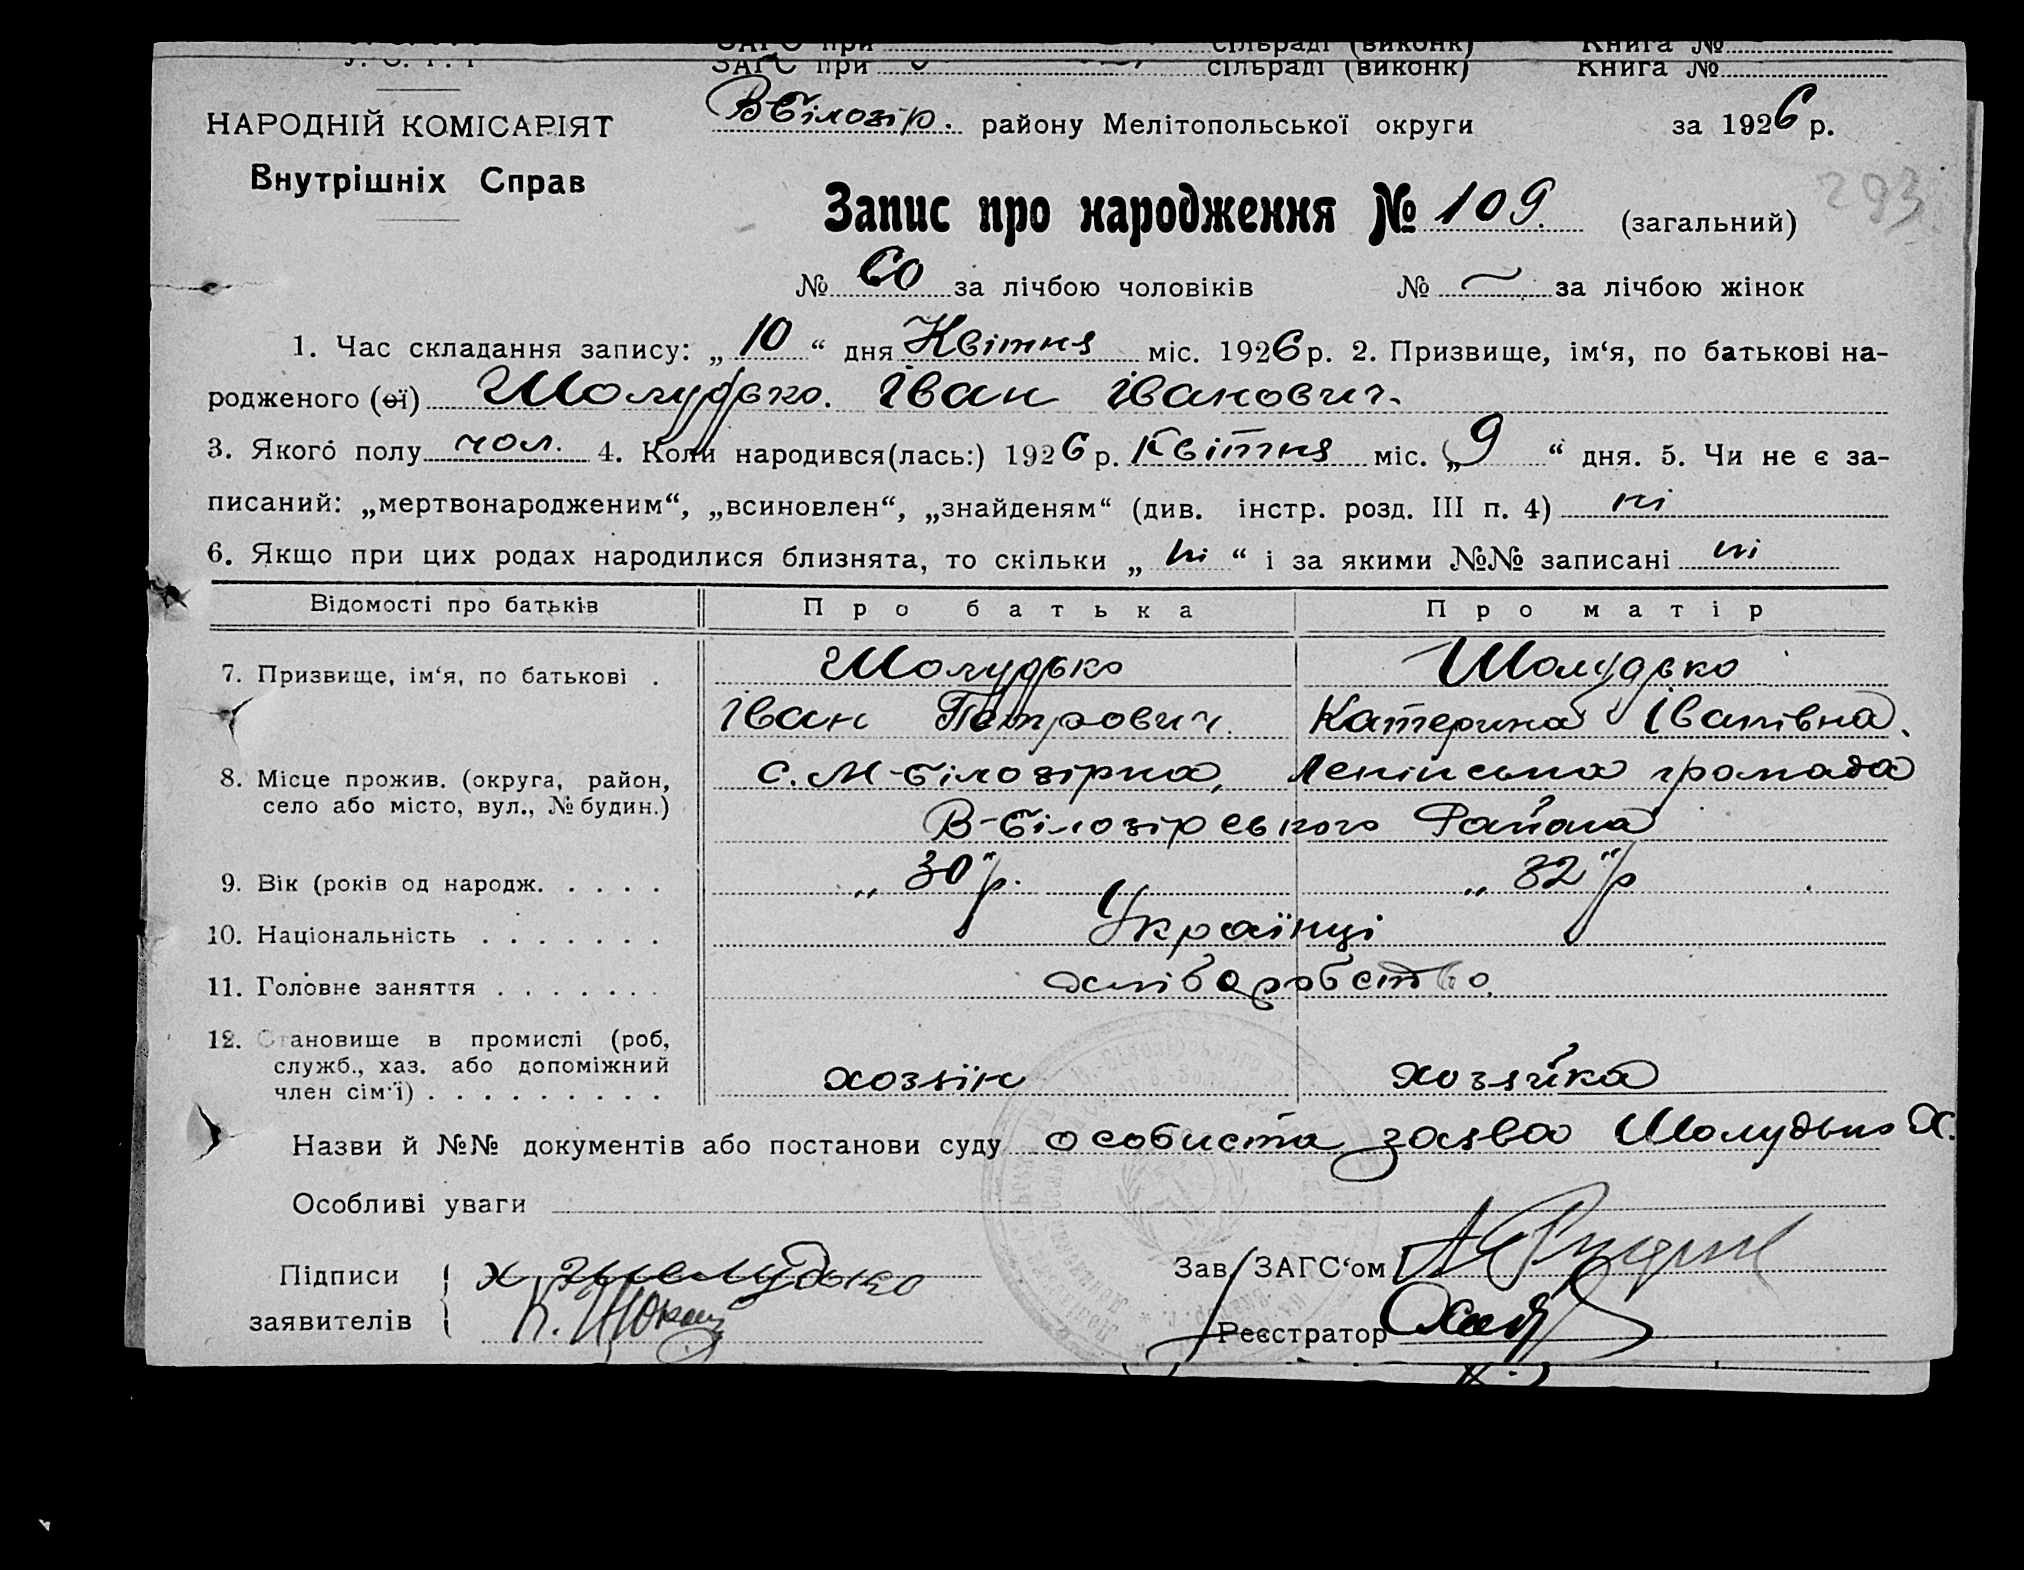 ЗАГС при сільраді (виконк) Книга №
ЗАГС при сільраді (виконк) Книга №
НАРОДНІЙ КОМІСАРІЯТ
Внутрішніх Справ
В Білозір. району Мелітопольської округи за 1926 р.
293
Запис про народження № 109. (загальний)
№ 60 за лічбою чоловіків № — за лічбою жінок
1. Час складання запису: „ 10 “ дня Квітня міс. 1926 р. 2. Призвище, ім‘я, по батькові на-
родженого (ої) Шолудько. Іван Іванович.
3. Якого полу чол. 4. Коли народився(лась:) 1926 р. Квітня міс. „ 9 “ дня. 5. Чи не є за-
писаний: „мертвонародженим“, „всиновлен“, „знайденям“ (див. інстр. розд. III п. 4) ні
6. Якщо при цих родах народилися близнята, то скільки „ ні “ і за якими №№ записані ні
Відомості про батьків Про батька Про матір
7. Призвище, ім‘я, по батькові . Шолудько Шолудько
Іван Петрович. Катерина Іванівна.
8. Місце прожив. (округа, район, с. М-Білозірка, Ленінська громада
село або місто, вул., № будин.)
В-Білозірського Района
9. Вік (років од народж. . . . . „ 30 “ р. „ 32 “ р
10. Національність . . . . . . . Українці
11. Головне заняття . . . . . . . хліборобство
12. Становище в промислі (роб, служб., хаз. або допоміжний член сім‘ї) . . . . . . . . . хозяїн хозяйка
Назви й №№ документів або постанови суду особиста заява Шолудько Х.
Особливі уваги
Підписи Х Шолудько Зав. ЗАГС‘ом
заявителів К. Реєстратор